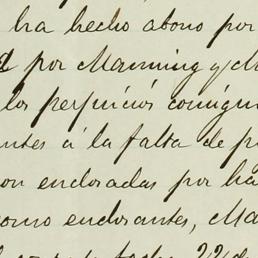 ha hecho abono por
por Manning y M
los perjuicios consigui
ntes á la falta de p
on endosadas por ha
como endosantes, Ma